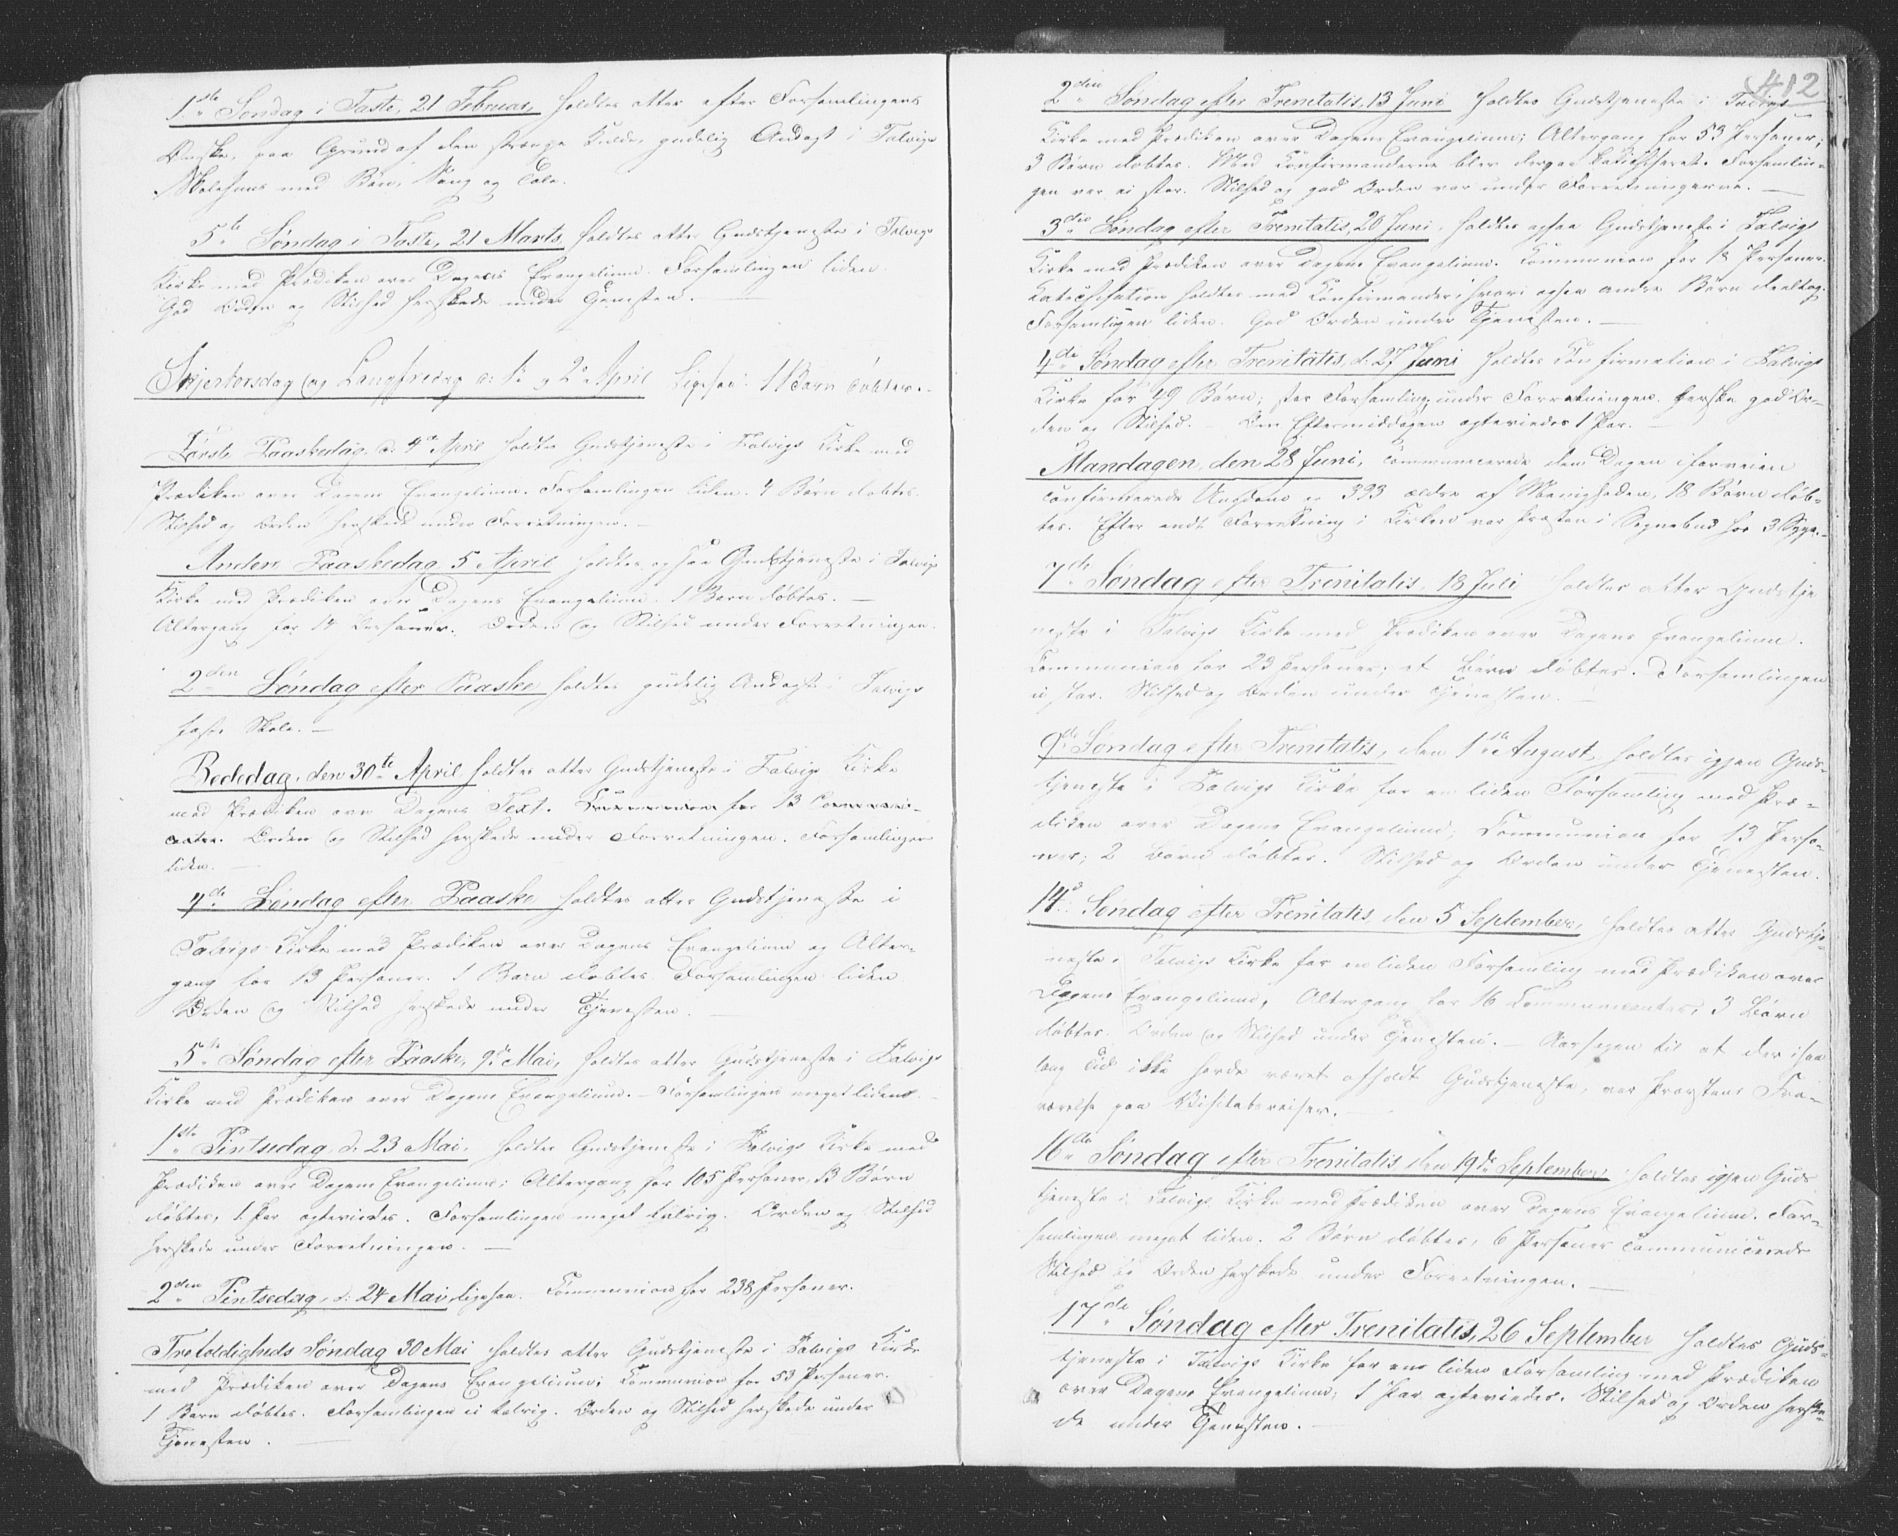 1ste Søndag i Faste, 21 Februar, holdtes atter efter Forsamlingens
Ønske, paa Grund af den strænge Kulde, gudelig Andagt i Talvigs
Skolehuus med Bøn, Sang og Tale.
5te Søndag i Faste, 21 Marts holdtes atter Gudstjeneste i Talvigs
Kirke med Prædiken over Dagens Evangelium. Forsamlingen liden.
God Orden og Stilhed herskede under Tjenesten. —
Skjertorsdag og Langfredag d: 1 og 2 April ligesaa. 1 Barn døbtes.
Første Paaskedag d. 4de April holdtes Gudstjeneste i Talvigs Kirke med
Prædiken over Dagens Evangelium. Forsamlingen liden. 4 Børn døbtes.
Stilhed og Orden herskede under Forretningen. —
Anden Paaskedag 5 April holdtes ogsaa Gudstjeneste i Talvigs
Kirke med Prædiken over Dagens Evangelium. 1 Barn døbtes. —
Altergang for 14 Personer. Orden og Stilhed under Forretningen.
2den Søndag efter Paaske holdtes gudelig Andagt i Talvigs
faste Skole. —
Bededag, den 30te April holdtes atter Gudstjeneste i Talvigs Kirke
med Prædiken over Dagens Text. Communion for 13 Communi-
canter. Orden og Stilhed herskede under Forretningen. Forsamlingen
liden. —
4de Søndag efter Paaske holdtes atter Gudstjeneste i
Talvigs Kirke med Prædiken over Dagens Evangelium og Alter-
gang for 13 Personer. 1 Barn døbtes. Forsamlingen liden
Orden og Stilhed herskede under Tjenesten. —
5te Søndag efter Paaske, 9de Mai, holdtes atter Gudstjeneste i Talvigs
Kirke med Prædiken over Dagens Evangelium. — Forsamlingen meget liden.
1ste Pintsedag d. 23 Mai, holdtes Gudstjeneste i Talvigs Kirke med
Prædiken over Dagens Evangelium; Altergang for 105 Personer, 13 Børn
døbtes, 1 Par ægteviedes. Forsamlingen meget talrig. Orden og Stilhed
herskede under Forretningen. —
2den Pintsedag, d. 24 Mai, ligesaa. Communion for 238 Personer.
Trefoldigheds Søndag 30 Mai holdtes atter Gudstjeneste i Talvigs Kirke
med Prædiken over Dagens Evangelium; Communion for 53 Personer.
1 Barn døbtes. Forsamlingen ei talrig. Orden og Stilhed herskede under
Tjenesten. —
412
2den Søndag efter Trenitatis, 13 Juni holdtes Gudstjeneste i Talvigs
Kirke med Prædiken over Dagens Evangelium; Altergang for 53 Personer;
3 Børn døbtes. Med Confirmanderne blev derpaa katechiseret. Forsamlin-
gen var ei stor. Stilhed og god Orden var under Forretningerne. —
3die Søndag efter Trenitatis, 20 Juni, holdtes ogsaa Gudstjeneste i Talvigs
Kirke med Prædiken over Dagens Evangelium. Communion for 18 Personer.
Katechisation holdtes med Confirmander, hvori ogsaa andre Børn deeltog.
Forsamligen liden. God Orden under Tjenesten. —
4de Søndag efter Trenitatis d. 27 Juni holdtes Confirmation i Talvigs
Kirke for 49 Børn; stor Forsamling; under Forretningen herske god Or-
den og Stilhed. — Om Eftermiddagen ægteviedes 1 Par. —
Mandagen, den 28 Juni, communicerede den Dagen iforveien
confirmerede Ungdom og 393 ældre af Menigheden, 18 Børn døb-
tes. Efter endt Forretning i Kirken var Præsten i Sognebud hos 3 Syge. —
7de Søndag efter Trenitatis, 18 Juli holdtes atter Gudstje
neste i Talvigs Kirke med Prædiken over Dagens Evangelium.
Communion for 23 Personer, et Barn døbtes. Forsamlingen
ei stor. Stilhed og Orden under Tjenesten. —
9de Søndag efter Trenitatis, den 1ste August, holdtes igjen Guds-
tjeneste i Talvigs Kirke for en liden Forsamling med Præ-
diken over Dagens Evangelium; Communion for 13 Perso-
ner; 2 Børn døbtes. Stilhed og Orden under Tjenesten.
14de Søndag efter Trenitatis, den 5 September, holdtes atter Gudstje-
neste i Talvigs Kirke for en liden Forsamling med Prædiken over
Dagens Evangelium, Altergang for 16 Communicanter, 3 Børn
døbtes. Orden og Stilhed under Tjenesten. — Aarsagen til at der i saa
lang Tid ikke havde været afholdt Gudstjeneste, var Provstens Fra-
værelse paa Visitatsreiser. —
16de Søndag efter Trenitatis, den 19de September, holdtes igjen Guds
tjeneste i Talvigs Kirke med Prædiken over Dagens Evangelium. For-
samlingen meget liden. 2 Børn døbtes, 6 Personer communicerede
Stilhed og Orden herskede under Forretningen. —
17de Søndag efter Trenitatis, 26 September holdtes Guds-
tjeneste i Talvigs Kirke for en liden Forsamling med Prædiken
over Dagens Evangelium; 1 Par ægteviedes. Stilhed og Orden herske-
de under Tjenesten. —